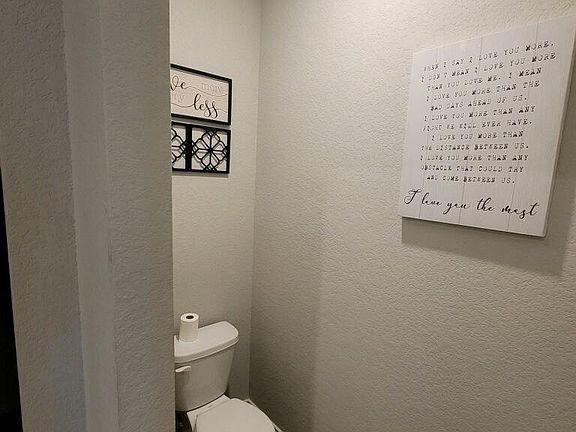 more
less
WHEN I SAY I LOVE YOU MORE,
I DON'T MEAN I LOVE YOU MORE
THAN YOU LOVE ME. I MEAN
I LOVE YOU MORE THAN THE
BAD DAYS AHEAD OF US.
I LOVE YOU MORE THAN ANY
FIGHT WE WILL EVER HAVE.
I LOVE YOU MORE THAN
THE DISTANCE BETWEEN US.
I LOVE YOU MORE THAN ANY
OBSTACLE THAT COULD TRY
AND COME BETWEEN US.
I love you the most